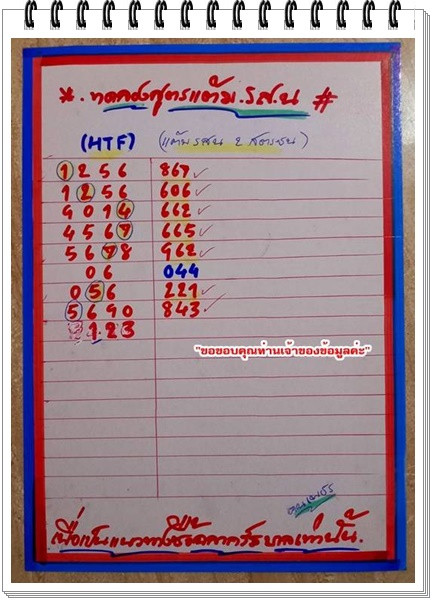 *. ทดลองสูตรแต้ม.รส.น #
(HTF) (แต้มรชน 2 สตรชน)
1256 867 ✓
1256 606 ✓
9014 662 ✓
4567 665 ✓
5678 962 ✓
06 044
056 221 ✓
5690 843 ✓
123
"ขอขอบคุณท่านเจ้าของข้อมูลค่ะ"
เพื่อเป็นแนวทางซื้อสลากรัฐบาลเท่านั้น.